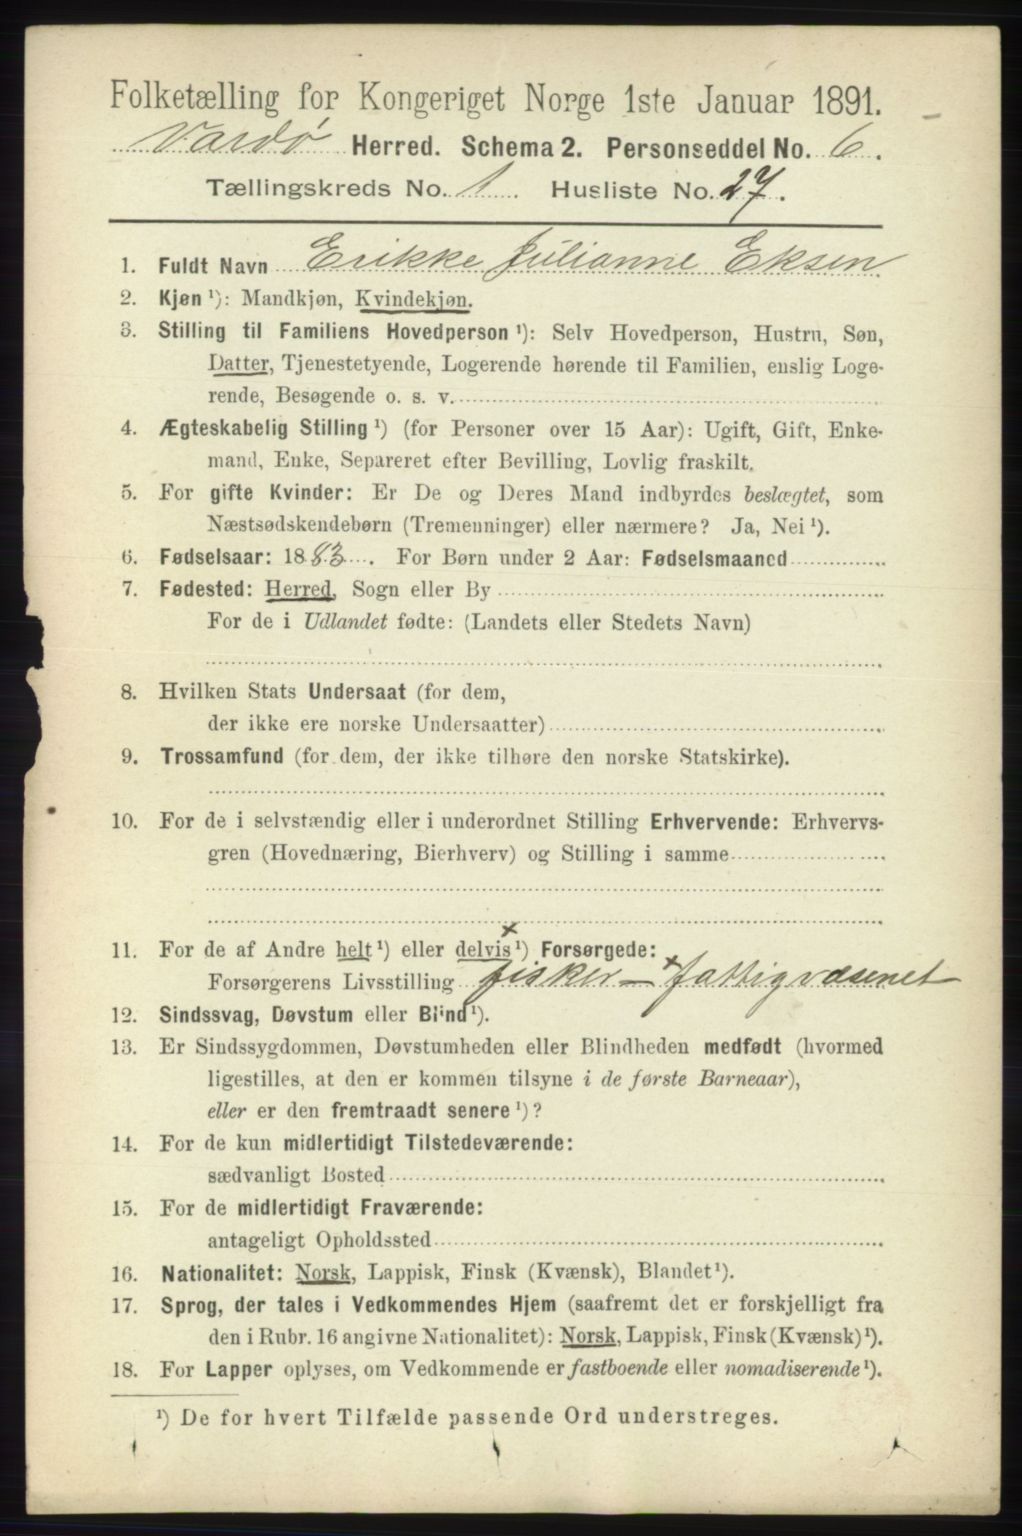 Folketælling for Kongeriget Norge 1ste Januar 1891.
Vardø Herred. Schema 2. Personseddel No. 6.
Tællingskreds No. 1. Husliste No. 27.
1. Fuldt Navn Erikke Julianne Eksen
2. Kjøn ¹): Mandkjøn, Kvindekjøn.
3. Stilling til Familiens Hovedperson ¹): Selv Hovedperson, Hustru, Søn,
Datter, Tjenestetyende, Logerende hørende til Familien, enslig Loge-
rende, Besøgende o. s. v.
4. Ægteskabelig Stilling ¹) (for Personer over 15 Aar): Ugift, Gift, Enke-
mand, Enke, Separeret efter Bevilling, Lovlig fraskilt.
5. For gifte Kvinder: Er De og Deres Mand indbyrdes beslægtet, som
Næstsødskendebørn (Tremenninger) eller nærmere? Ja, Nei ¹).
6. Fødselsaar: 1883. For Børn under 2 Aar: Fødselsmaaned
7. Fødested: Herred, Sogn eller By
For de i Udlandet fødte: (Landets eller Stedets Navn)
8. Hvilken Stats Undersaat (for dem,
der ikke ere norske Undersaatter)
9. Trossamfund (for dem, der ikke tilhøre den norske Statskirke).
10. For de i selvstændig eller i underordnet Stilling Erhvervende: Erhvervs-
gren (Hovednæring, Bierhverv) og Stilling i samme
11. For de af Andre helt ¹) eller delvis ¹) x Forsørgede:
Forsørgerens Livsstilling fisker - x fattigvæsenet
12. Sindssvag, Døvstum eller Blind ¹).
13. Er Sindssygdommen, Døvstumheden eller Blindheden medfødt (hvormed
ligestilles, at den er kommen tilsyne i de første Barneaar),
eller er den fremtraadt senere ¹)?
14. For de kun midlertidigt Tilstedeværende:
sædvanligt Bosted
15. For de midlertidigt Fraværende:
antageligt Opholdssted
16. Nationalitet: Norsk, Lappisk, Finsk (Kvænsk), Blandet ¹).
17. Sprog, der tales i Vedkommendes Hjem (saafremt det er forskjelligt fra
den i Rubr. 16 angivne Nationalitet): Norsk, Lappisk, Finsk (Kvænsk) ¹).
18. For Lapper oplyses, om Vedkommende er fastboende eller nomadiserende ¹).
¹) De for hvert Tilfælde passende Ord understreges.